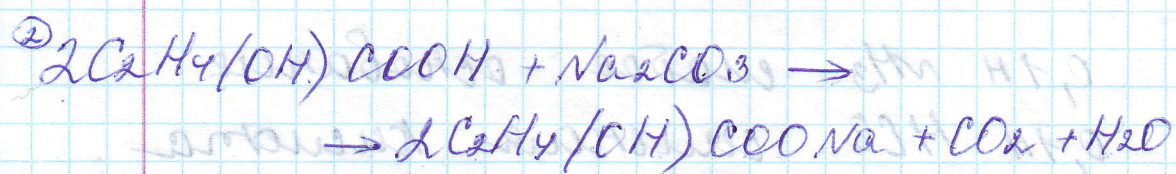 ② 2C2H4(OH)COOH + Na2CO3 →
→ 2C2H4(OH)COONa + CO2 + H2O